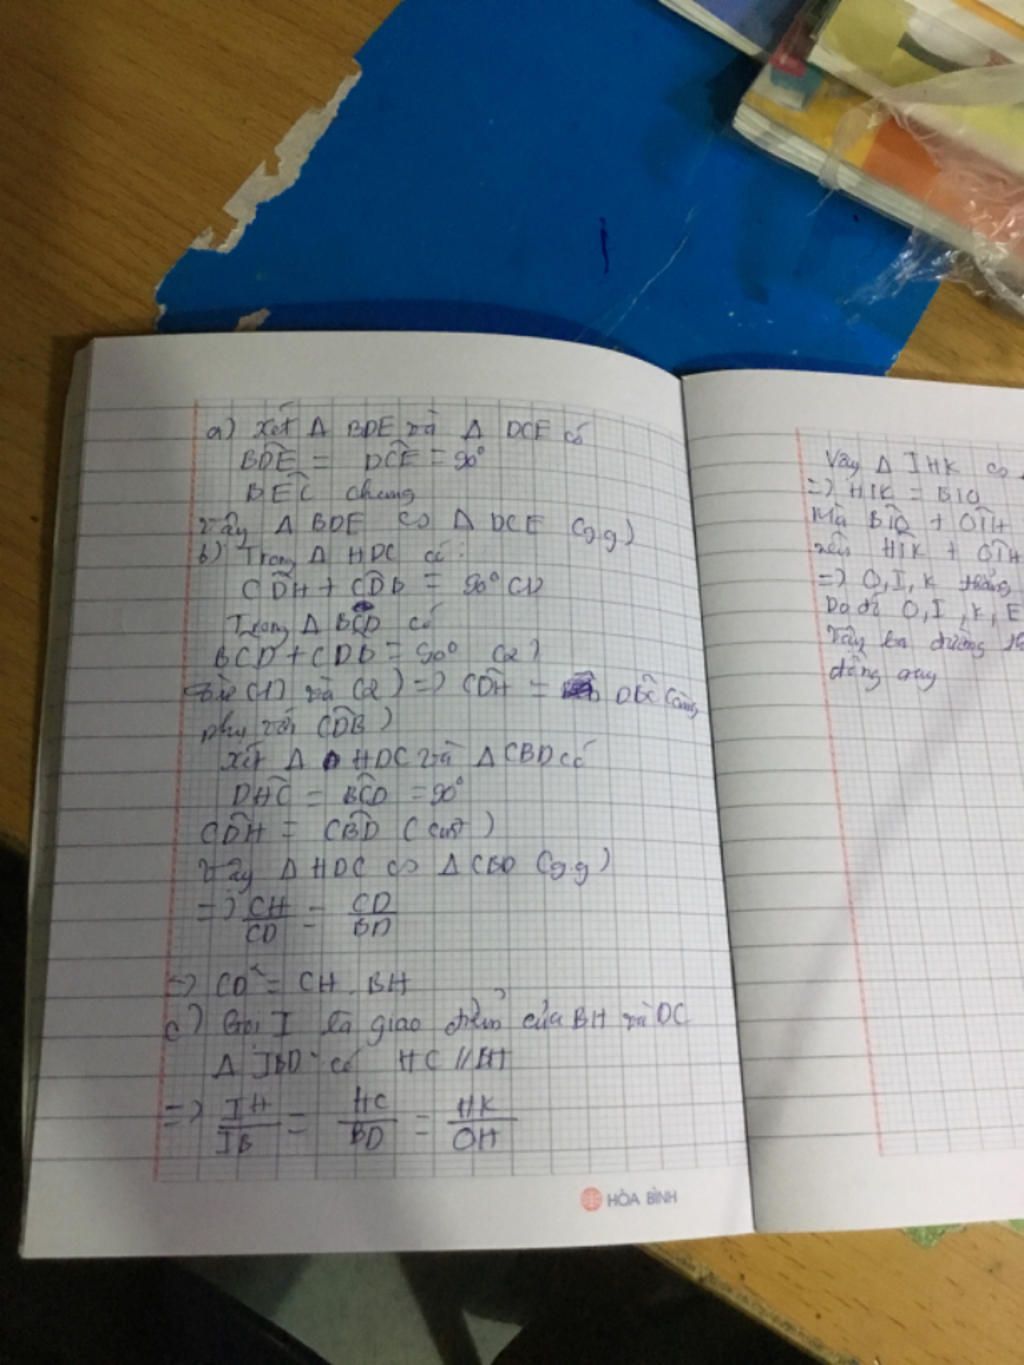 a) Xét Δ BDE và Δ DCE có
BDE = DCE = 90°
BEC chung
Vậy Δ BDE ∽ Δ DCE (g.g)
b) Trong Δ HDC có:
CDH + CDB = 90° (1)
Trong Δ BCD có
BCD + CDB = 90° (2)
(1) và (2) => CDH = DBC (cùng
phụ với CDB)
Xét Δ HDC và Δ CBD có
DHC = BCD = 90°
CDH = CBD (cmt)
Vậy Δ HDC ∽ Δ CBD (g.g)
=> CH/CD = CD/BD
=> CD² = CH . BH
c) Gọi I là giao điểm của BH và DC
Δ IBD có HC // BH
=> IH/IB = HC/BD = HK/OH
HÒA BÌNH
Vậy Δ IHK ∽
=> HIK = BIO
Mà BIO + OIH
nên HIK + OIH
=> O, I, K thẳng
Do đó O, I, K, E
Vậy ba đường
đồng quy